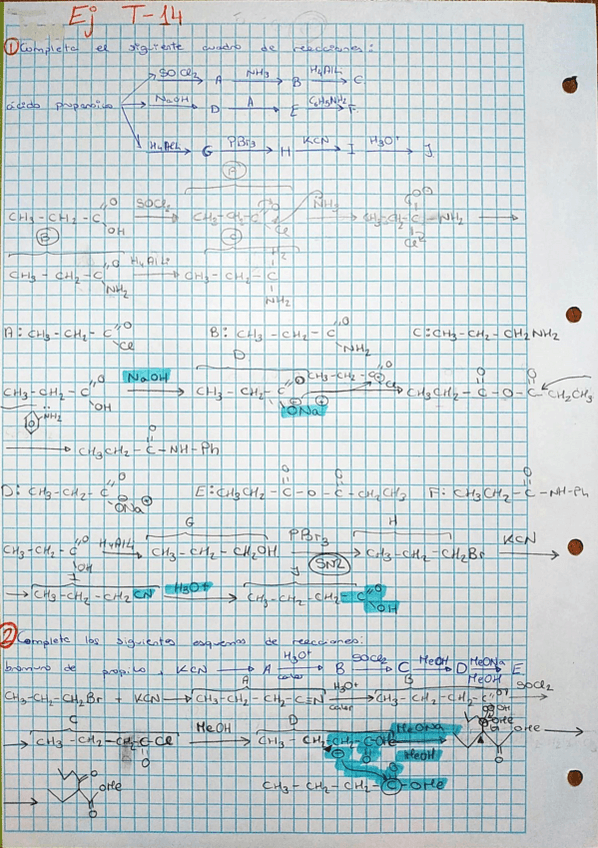 Ej T-14
① Completa el siguiente cuadro de reacciones:
SOCl2 A NH3 B H4AlLi C
ácido propanoico NaOH D A E C6H5NH2 F
H4AlLi G PBr3 H KCN I H3O+ J
A
CH3-CH2-C O OH SOCl2 CH3-CH2-C O Cl NH3 CH3-CH2-C O NH2 Cl
B C
CH3-CH2-C O NH2 H4AlLi CH3-CH2-C H2 NH2
A: CH3-CH2-C O Cl B: CH3-CH2-C O NH2 C: CH3-CH2-CH2NH2
D
CH3-CH2-C O OH NaOH CH3-CH2-C O ONa CH3-CH2-C O Cl CH3CH2-C O -O-C O CH2CH3
NH2
CH3CH2-C O -NH-Ph
D: CH3-CH2-C O ONa E: CH3CH2-C O -O-C O -CH2CH3 F: CH3CH2-C O -NH-Ph
G H
CH3-CH2-C O OH H4AlLi CH3-CH2-CH2OH PBr3 SN2 CH3-CH2-CH2Br KCN
I J
CH3-CH2-CH2CN H3O+ CH3-CH2-CH2-C O OH
② Complete los siguientes esquemas de reacciones:
bromuro de propilo, KCN A H3O+ calor B SOCl2 C MeOH D MeONa MeOH E
A B
CH3-CH2-CH2Br + KCN CH3-CH2-CH2-C≡N H3O+ calor CH3-CH2-CH2-C O OH SOCl2
C D
CH3-CH2-CH2C-Cl O MeOH CH3-CH2-CH2-C OMe O MeONa MeOH OMe O OMe
CH3-CH2-CH2-C O -OMe
O OMe O